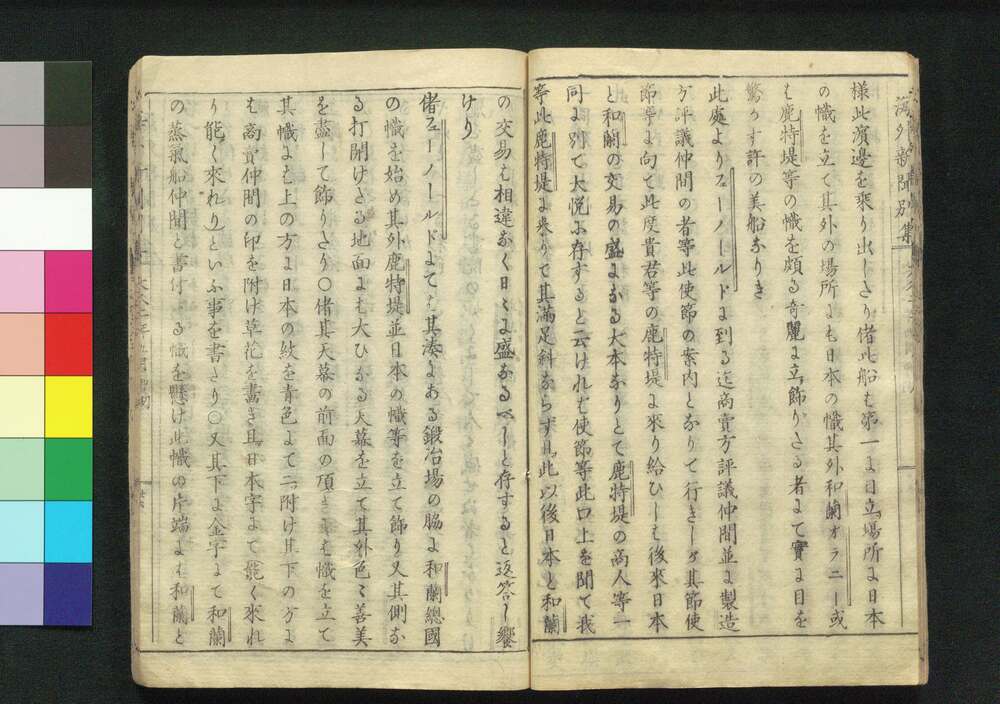 海外新聞別集
様此濱邊を乗り出しさり偖此船も第一よ日立場所よ日本
の幟を立て其外の場所よも日本の幟其外和蘭オラニー或
も鹿特堤等の幟を頗る奇麗よ立飾りさる者よて實よ目を
驚らす許の美船なりき
此處よりフェーノールドよ到る迄商賣方評議仲間並よ製造
方評議仲間の者等此使節の案内となりて行きしが其節使
節等よ向て此度貴君等の鹿特堤よ來り給ひしも後來日本
と和蘭の交易の盛よなる大本なりとて鹿特堤の商人等一
同よ別て大悦ふ存すると云けれも使節等此口上を聞て我
等此鹿特堤よ来りて其滿足斜ならず且此以後日本と和蘭
の交易も相違なく日々よ盛なるべしと存すると返答し饗
けり
偖フェーノールドよても其湊よある鍛冶場の脇よ和蘭總國
の幟を始め其外鹿特堤並日本の幟等を立て飾り又其側な
る打開けさる地面よも大ひなる天幕を立て其外色々善美
を盡して飾りさり〇偖其天幕の前面の頂きよも幟を立て
其幟よも上の方よ日本の紋を青色よて二附け其下の方よ
も商賣仲間の印を附け草花を畫き且日本字よて能く來れ
り能く來れりといふ事を書さり〇又其下よ金字よて和蘭
の蒸氣船仲間と書付さる幟を懸け此幟の片端よも和蘭と